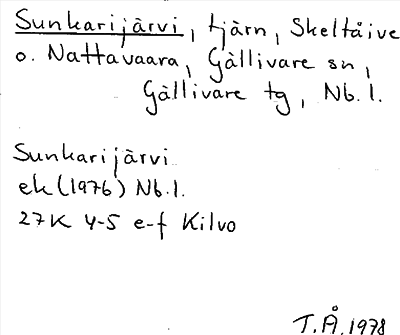 Sunkarijärvi, tjärn, Skeltåive
o. Nattavaara, Gällivare sn,
Gällivare tg, Nb.l.
Sunkarijärvi
ek (1976) Nb.l.
27K 4-5 e-f Kilvo
T.Å. 1978